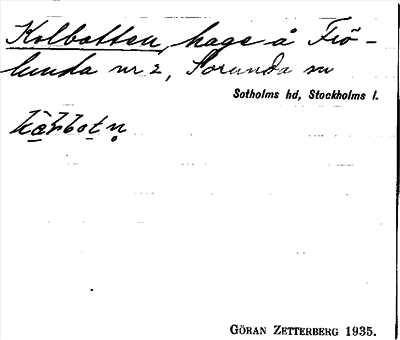 Kolbotten, hage å Frö-
lunda nr 2, Sorunda sn
Sotholms hd, Stockholms l.
GÖRAN ZETTERBERG 1935.